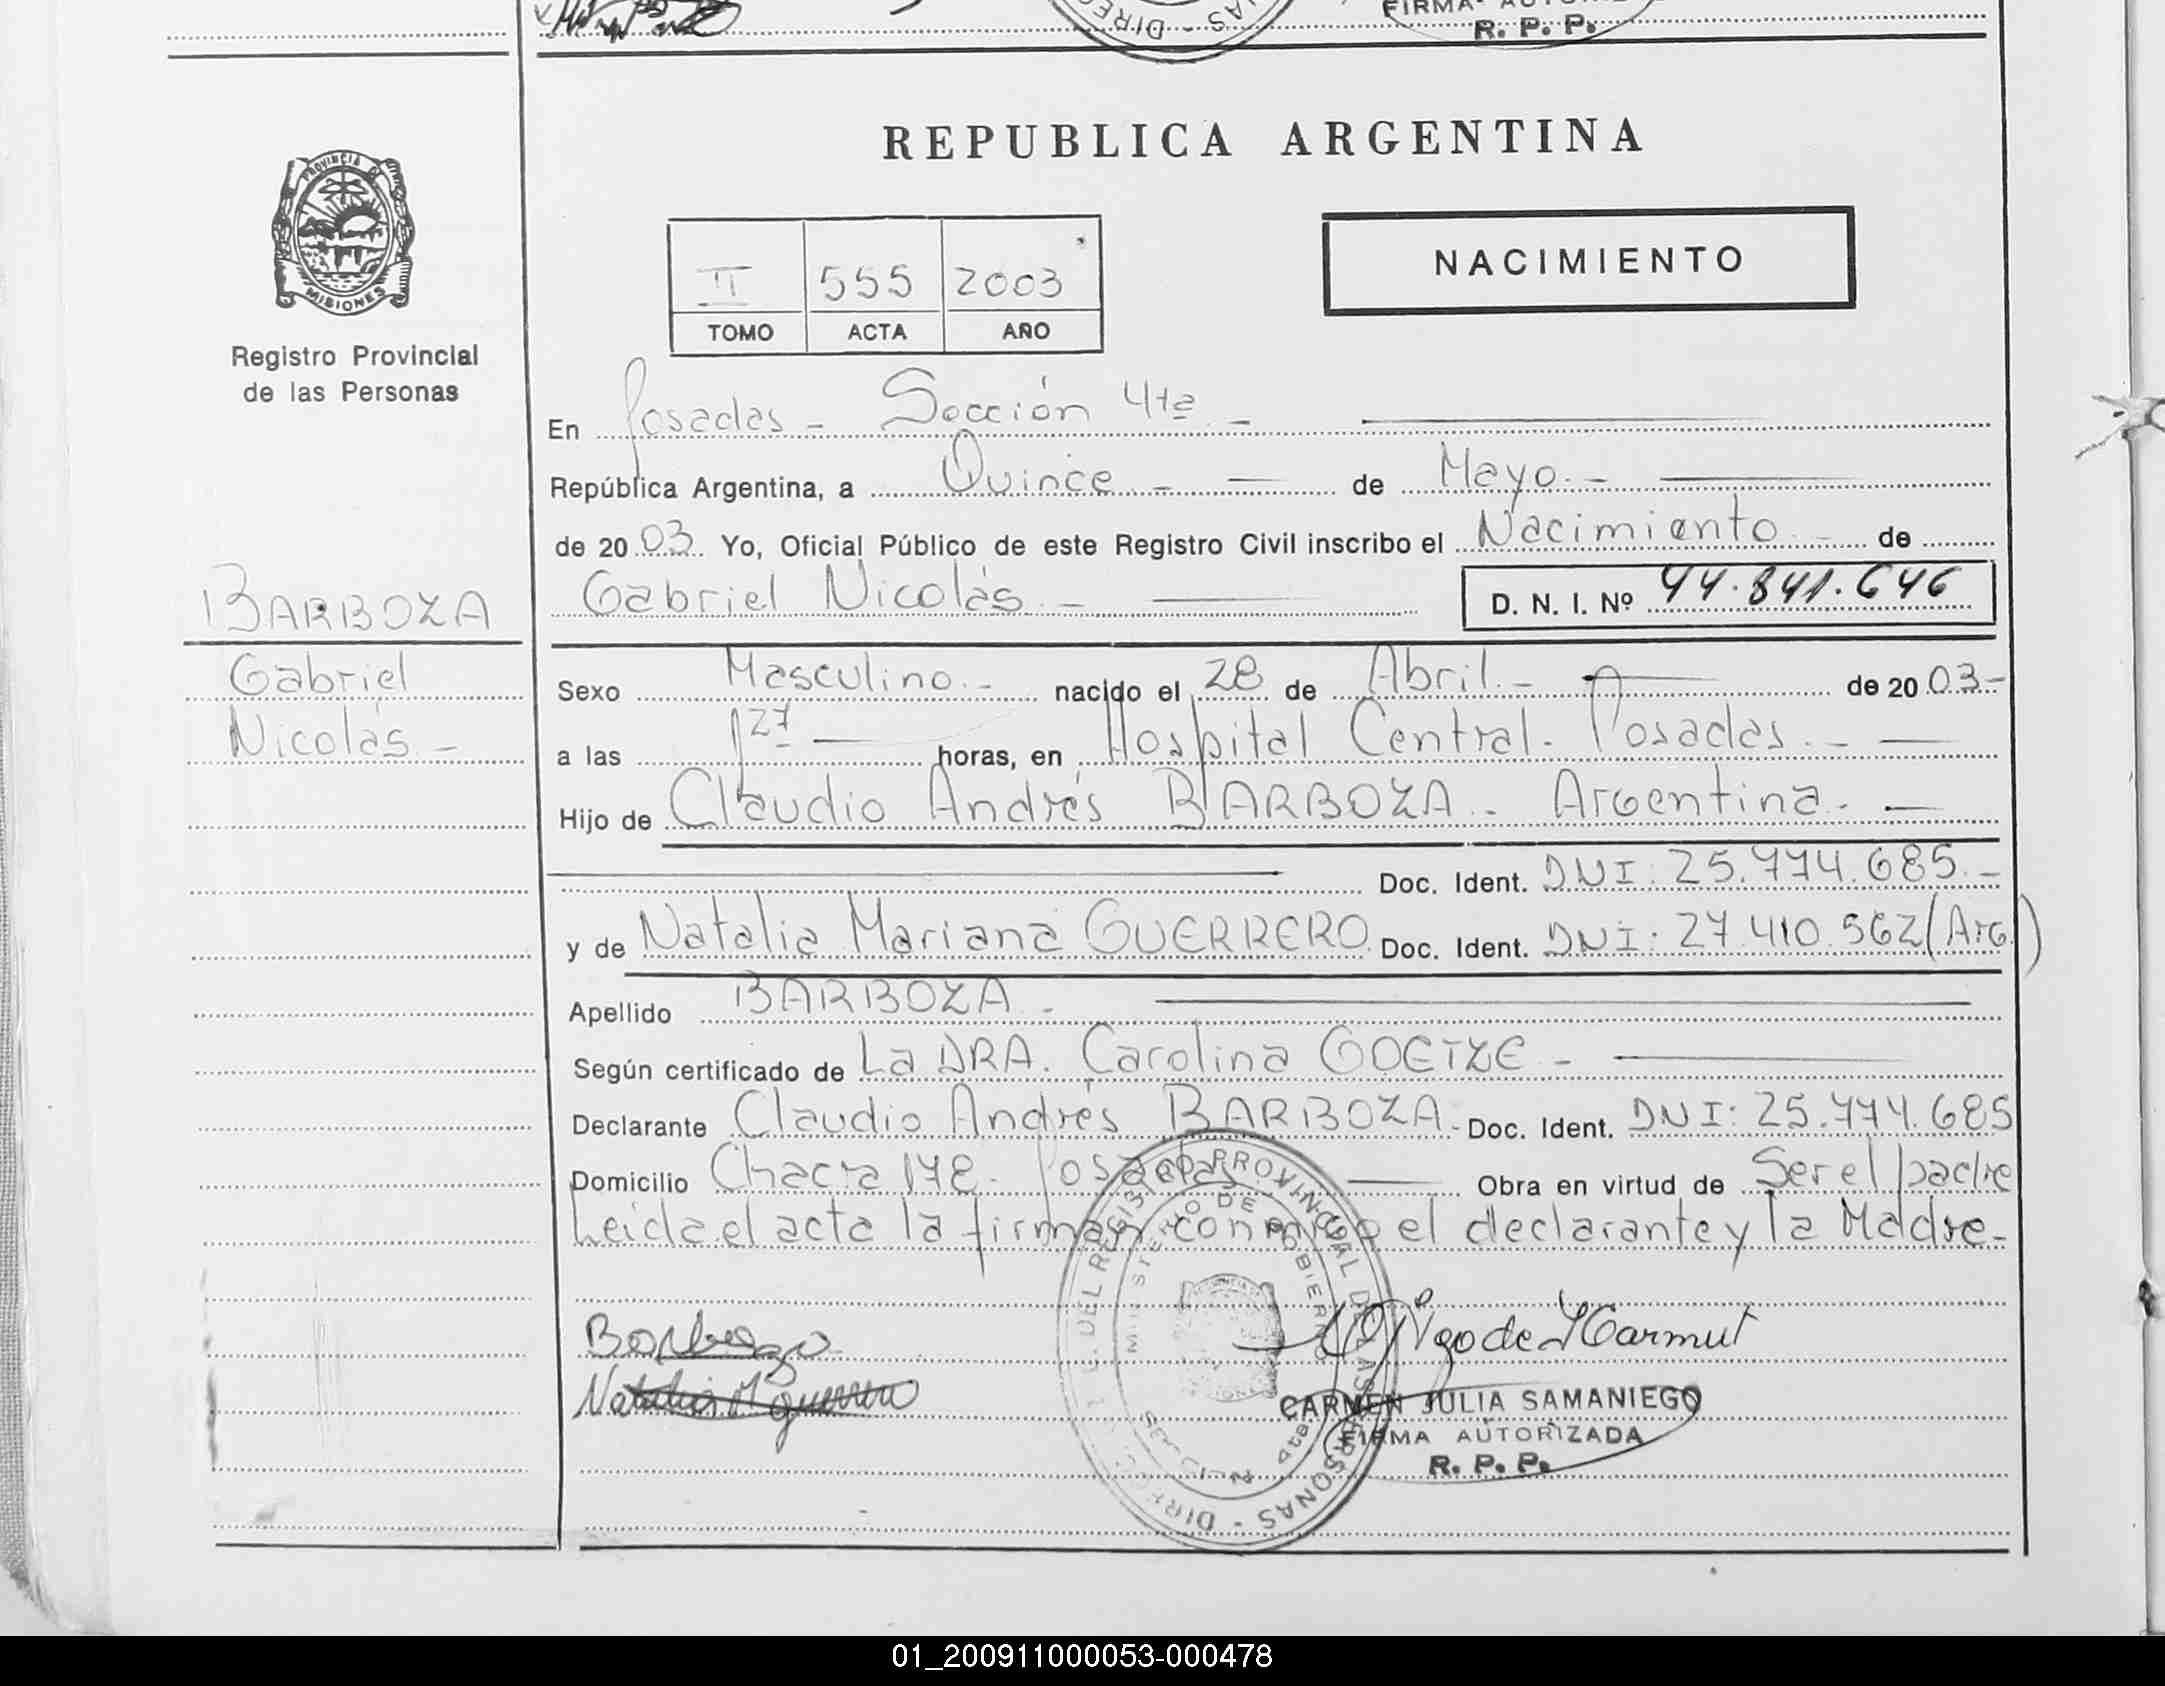 FIRMA AUTO
R. P. P.
DIREC
REPUBLICA ARGENTINA
PROVINCIA
MISIONES
Registro Provincial
de las Personas
II 555 2003
TOMO ACTA AÑO
NACIMIENTO
En Posadas - Sección 4ta -
República Argentina, a Quince - de Mayo -
de 2003 Yo, Oficial Público de este Registro Civil inscribo el Nacimiento - de
Gabriel Nicolás - D. N. I. Nº 44.841.646
BARBOZA
Gabriel
Nicolás -
Sexo Masculino - nacido el 28 de Abril - de 2003 -
a las 1 27 horas, en Hospital Central - Posadas -
Hijo de Claudio Andrés BARBOZA - Argentina -
Doc. Ident. DNI: 25.774.685 -
y de Natalia Mariana GUERRERO Doc. Ident. DNI: 27.410.562 (Arg.)
Apellido BARBOZA -
Según certificado de La DRA. Carolina GOETZE -
Declarante Claudio Andrés BARBOZA - Doc. Ident. DNI: 25.774.685
Domicilio Chacra 178 - Posadas Obra en virtud de Ser el padre
Leida el acta la firman conmigo el declarante y la Madre -
Barboza
Natalia M guerrero
CARMEN JULIA SAMANIEGO
FIRMA AUTORIZADA
R. P. P.
01_200911000053-000478